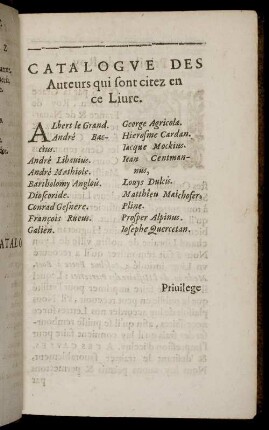 CATALOGVE DES
Auteurs qui sont citez en
ce Liure.
Albert le Grand.
André Bac-
cius.
André Libanius.
André Mathiole.
Bartholomy Anglois.
Dioscoride.
Conrad Gesnere.
François Rueus.
Galien.
George Agricola.
Hierosme Cardan.
Iacque Mockius.
Iean Centman-
nus,
Louys Dulcis.
Matthieu Maichofer.
Pline.
Prosper Alpinus.
Iosephe Quercetan.
Priuilege